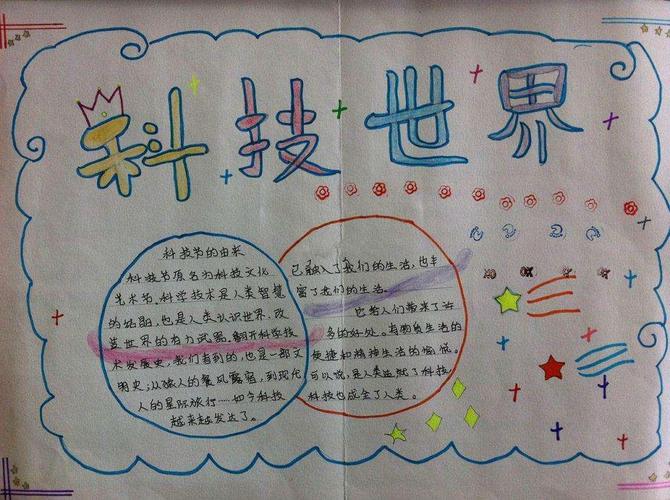 科技世界
科技节的由来
科技节原名为科技文化
艺术节。科学技术是人类智慧
的结晶,也是人类认识世界,改
造世界的有力武器。翻开科学技
术发展史,我们看到的,也是一部文
明史;从猿人的餐风露宿,到现代
人的星际旅行……如今科技
越来越发达了。
已融入了我们的生活,也丰
富了我们的生活。
它给人们带来了许
多的好处。有物质生活的
便捷和精神生活的愉悦。
可以说,是人类造就了科技,
科技也成全了人类。